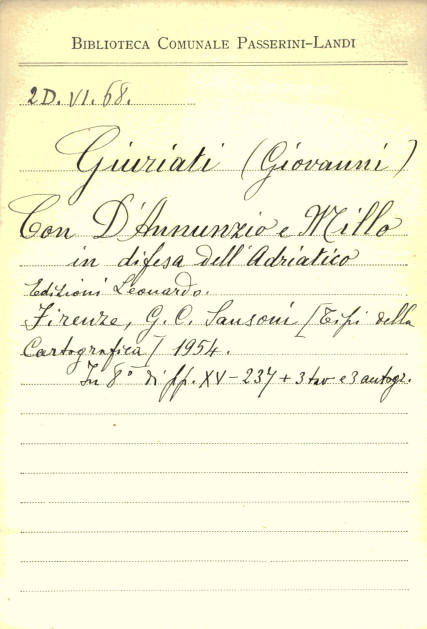 BIBLIOTECA COMUNALE PASSERINI-LANDI
2D. VI. 68.
Giuriati (Giovanni)
Con D'Annunzio e Millo
in difesa dell'Adriatico
Edizioni Leonardo.
Firenze, G. C. Sansoni [Tipi della
Cartografica] 1954.
In 8° di pp. XV - 237 + 3 tav e 3 autogr.